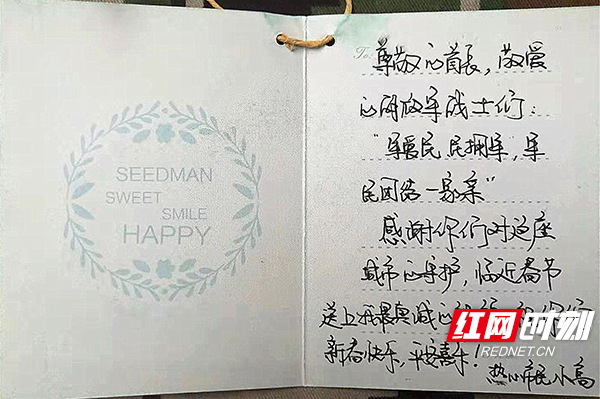 SEEDMAN
SWEET
SMILE
HAPPY
To:
尊敬的首长，敬爱
的解放军战士们：
"军爱民 民拥军"，军
民团结一家亲"
感谢你们对这座
城市的守护，临近春节
送上我最真诚的
新春快乐，平安喜乐！
热心市民小高
红网时刻
REDNET.CN